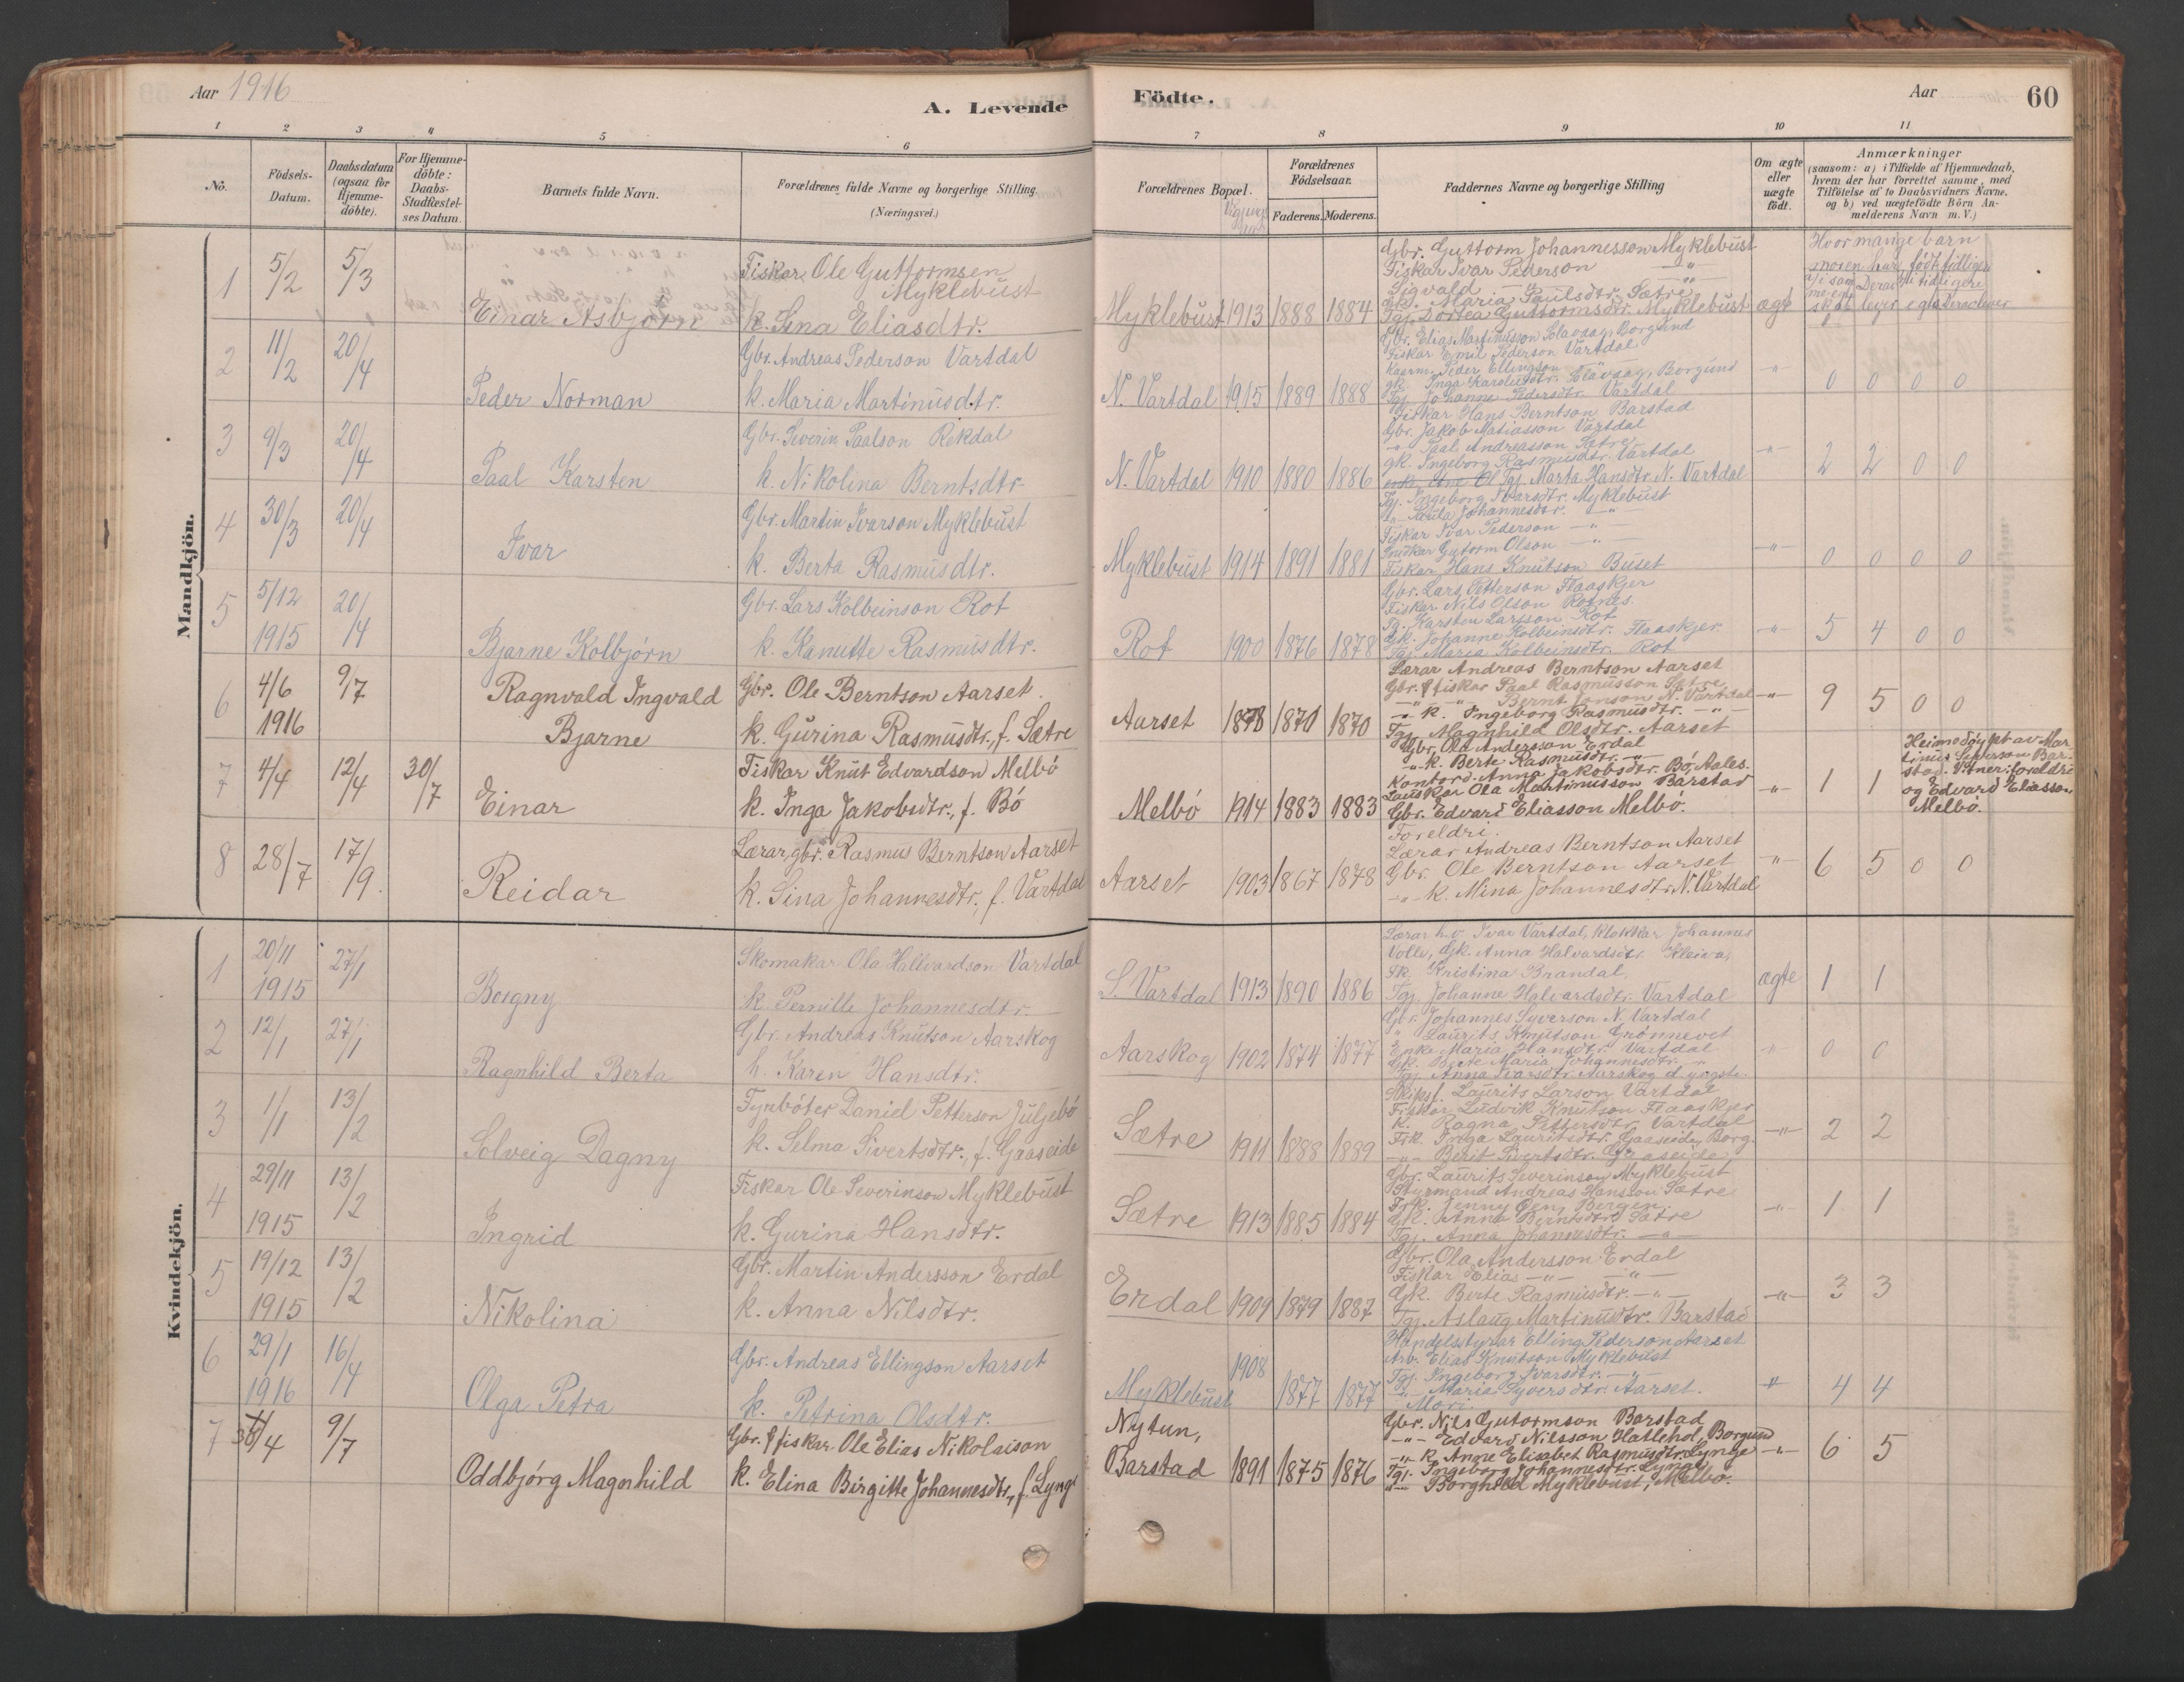 Aar 1916
A. Levende
Födte.
Aar
60
1 2 3 4 5 6 7 8 9 10 11
No.
Födsels-
Datum.
Daabsdatum
(ogsaa for
Hjemme-
döbte).
For Hjemme-
döbte:
Daabs-
Stadfæstel-
ses Datum.
Barnets fulde Navn.
Forældrenes fulde Navne og borgerlige Stilling.
(Næringsvei.)
Forældrenes Bopæl.
Forældrenes
Födselsaar.
Faderens. Moderens.
Faddernes Navne og borgerlige Stilling
Om ægte
eller
uægte
födt.
Anmærkninger
(saasom: a) i Tilfælde af Hjemmedaab,
hvem der har forrettet samme, med
Tilföielse af to Daabsvidners Navne,
og b) ved uægtefödte Börn An-
melderens Navn m. V.)
Mandkjön.
1
5/2
5/3
Einar Asbjørn
Fiskar Ole Guttormsen
Myklebust
k. Sina Eliasdtr.
Myklebust 1913 1888 1884
Gbr. Guttorm Johannesson Myklebust
Fiskar Ivar Pederson —"—
Sigvald —"— —"—
Gk. Maria Paulsdtr. Sætre
Tgj. Dortea Guttormsdtr. Myklebust
ægt
Hvor mange barn
moren har födt tidligere
2
11/2
20/4
Peder Norman
Gbr. Andreas Pederson Vartdal
k. Maria Martinusdtr.
N. Vartdal 1915 1889 1888
Gbr. Elias Martinusson Solavaag, Borgund
Fiskar Emil Pederson Vartdal
Kaarm. Peder Ellingson —"—
gk. Inga Karolusdtr. Solavaag, Borgund
Tgj. Johanne Pedersdtr. Vartdal
—"—
0 0 0 0
3
9/3
20/4
Paal Karsten
Gbr. Severin Paalson Rekdal
k. Nikolina Berntsdtr.
N. Vartdal 1910 1880 1886
Fiskar Hans Berntson Barstad
Gbr. Jakob Matiasson Vartdal
—"— Paal Andreasson Sætre
gk. Ingeborg Rasmusdtr. Vartdal
Tgj. Marta Hansdtr. N. Vartdal
—"—
2 2 0 0
4
30/3
20/4
Ivar
Gbr. Martin Ivarson Myklebust
k. Berta Rasmusdtr.
Myklebust 1914 1891 1881
Tgj. Ingeborg Ivarsdtr. Myklebust
—"— Paula Johannesdtr. —"—
Fiskar Ivar Pederson —"—
Snidkar Gutorm Olson —"—
Fiskar Hans Knutson Buset
—"—
0 0 0 0
5
5/12
1915
20/4
Bjarne Kolbjørn
Gbr. Lars Kolbeinson Rot
k. Kanutte Rasmusdtr.
Rot 1900 1876 1878
Gbr. Lars Petterson Flaaskjer
Fiskar Nils Olson Rotnes
Tg. Karsten Larsson Rot
Gk. Johanne Kolbeinsdtr. Flaaskjer
Tgj. Maria Kolbeinsdtr. Rot
—"—
5 4 0 0
6
4/6
1916
9/7
Ragnvald Ingvald
Bjarne
Gbr. Ole Berntson Aarset.
k. Gurina Rasmusdtr., f. Sætre
Aarset 1898 1870 1870
Lærar Andreas Berntson Aarset
Gbr. & fiskar Paal Rasmusson Sætre
—"— —"— Bernt Janson N. Vartdal
—"— k. Ingeborg Rasmusdtr. —"—
Tgj. Magnhild Olsdtr. Aarset
—"—
9 5 0 0
7
4/4
12/4
30/7
Einar
Fiskar Knut Edvardson Melbö
k. Inga Jakobsdtr., f. Bö
Melbö 1914 1883 1883
Gbr. Ola Andersson Erdal
—"— k. Berte Rasmusdtr. —"—
Kontord. Anna Jakobsdtr. Bö, Aales.
Lauskar Ola Martinusson Barstad
Gbr. Edvard Eliasson Melbö.
—"—
1 1
Heimedöypt av Mar-
tinus Siverson Bar-
stad. Vitner: foreldri
og Edvard Eliasson
Melbö.
8
28/7
17/9
Reidar
Lærar, gbr. Rasmus Berntson Aarset
k. Sina Johannesdtr., f. Vartdal
Aarset 1903 1867 1878
Foreldri.
Lærar Andreas Berntson Aarset
Gbr. Ole Berntson Aarset
—"— k. Mina Johannesdtr. N. Vartdal
—"—
6 5 0 0
Kvindekjön.
1
20/11
1915
27/1
Borgny
Skomakar Ola Hallvardson Vartdal
k. Pernille Johannesdtr.
S. Vartdal 1913 1890 1886
Lærar h.v. Ivar Vartdal, klokkar Johannes
Volle, Gk. Anna Halvardsdtr. Kleiva,
Sk. Kristina Brandal,
Tgj. Johanne Halvardsdtr. Vartdal
ægte
1 1
2
12/1
27/1
Ragnhild Berta
Gbr. Andreas Knutson Aarskog
k. Karen Hansdtr.
Aarskog 1902 1874 1877
Gbr. Johannes Syverson N. Vartdal
" Laurits Knutson Grönnevet
Enke Maria Hansdtr. Vartdal
Gk. Berte Maria Johannesdtr. "
Tgj. Anna Ivarsdtr. Aarskog d. yngste.
"
0 0
3
1/1
13/2
Solveig Dagny
Fyrböter Daniel Petterson Juljebö
k. Selma Sivertsdtr., f. Gaaseide
Sætre 1911 1888 1889
Skipsf. Laurits Larson Vartdal
Fiskar Ludvik Knutson Flaaskjer
k. Ragna Pettersdtr. Vartdal
Frk. Inga Lauritsdtr. Gaaseide, Borg.
—"— Berit Sivertsdtr. Gaaseide
—"—
2 2
4
29/11
1915
13/2
Ingrid
Fiskar Ole Severinson Myklebust
k. Gurina Hansdtr.
Sætre 1913 1885 1884
Gbr. Laurits Severinson Myklebust
Styrmand Andreas Hansson Sætre
Frk. Jenny Oen, Bergen
Gk. Anna Berntsdtr. Sætre
Tgj. Anna Johannesdtr. —"—
—"—
1 1
5
19/12
1915
13/2
Nikolina
Gbr. Martin Andersson Erdal
k. Anna Nilsdtr.
Erdal 1909 1879 1887
Gbr. Ola Andersson Erdal
Fiskar Elias —"— —"—
Gk. Berte Rasmusdtr. —"—
Tgj. Aslaug Martinusdtr. Barstad
—"—
3 3
6
29/1
1916
16/4
Olga Petra
Gbr. Andreas Ellingson Aarset
k. Petrina Olsdtr.
Myklebust 1908 1877 1877
Handelsstyrar Elling Pederson Aarset
Arb. Elias Knutson Myklebust
Tgj. Ingeborg Ivarsdtr. —"—
—"— Maria Syversdtr. Aarset.
Mori.
"
4 4
7
30/4
9/7
Oddbjörg Magnhild
Gbr. & fiskar Ole Elias Nikolaison
k. Elina Birgitte Johannesdtr., f. Lynge
Nytun,
Barstad 1891 1875 1876
Gbr. Nils Gutormson Barstad
—"— Edvard Nilsson Hatlehol, Borgund
—"— k. Anne Elisabet Rasmusdtr. Lynge
Tgj. Ingeborg Johannesdtr. Lynge
—"— Borghild Myklebust, Melbö.
—"—
6 5